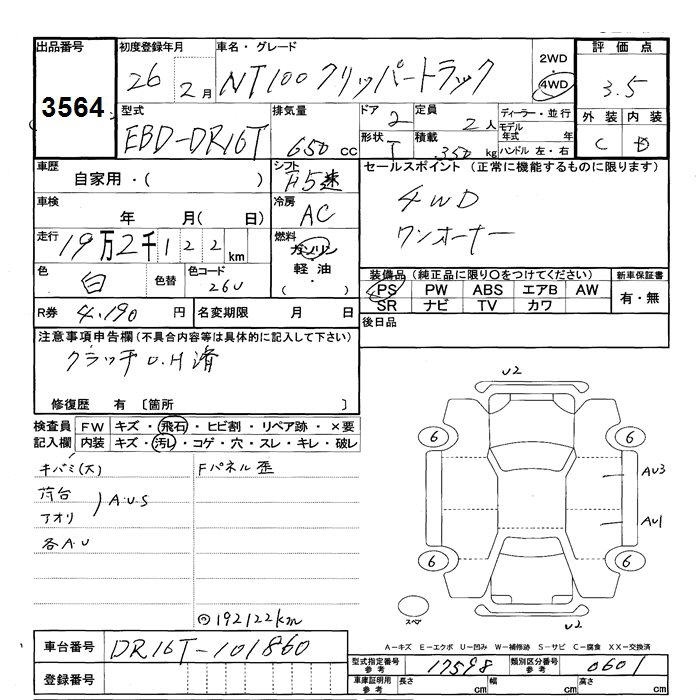 出品番号
3564
初度登録年月
26年 2月
車名・グレード
NT100クリッパートラック
2WD
・
4WD
評価点
3.5
外装 内装
C D
型式
EBD-DR16T
排気量
650 cc
ドア 2
形状 T
定員 2人
積載 350 kg
ディーラー・並行
モデル年式 年
ハンドル 左・右
車歴
自家用・( )
シフト
H5速
車検
年 月( 日)
冷房
AC
走行
19万2千122km
燃料
ガソリン
・
軽油
・
( )
色
白
色替
色コード
26U
R券 4,190 円
名変期限 月 日
セールスポイント (正常に機能するものに限ります)
4WD
ワンオーナー
装備品 (純正品に限り〇をつけてください)
PS PW ABS エアB AW
SR ナビ TV カワ
新車保証書
有・無
後日品
注意事項申告欄(不具合内容等は具体的に記入して下さい)
クラッチO.H済
修復歴 有 〔箇所 〕
検査員記入欄
FW キズ・飛石・ヒビ割・リペア跡・×要
内装 キズ・汚レ・コゲ・穴・スレ・キレ・破レ
キバミ(大)
荷台
アオリ
A・U・S
各A・U
Fパネル歪
192122km
U2
6 6
AU3
AU1
6 6
スペア
U2
A－キズ E－エクボ U－凹み W－補修跡 S－サビ C－腐食 XX－交換済
車台番号 DR16T-101860
登録番号
型式指定番号 参考 17598
類別区分番号 参考 0601
車庫証明用 参考 長さ cm 幅 cm 高さ cm